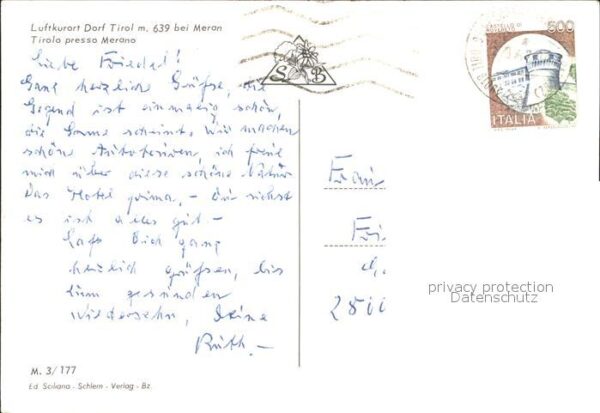 Luftkurort Dorf Tirol m. 639 bei Meran
Tirolo presso Merano
Liebe Friedel!
Ganz herzliche Grüße, die
Gegend ist einmalig schön,
die Sonne scheint. Wir machen
schöne Autotouren, ich freue
mich über diese schöne Natur
Das Hotel prima, - Du siehst
es ist alles gut -
Laß Dich ganz
herzlich grüßen, bis
zum gesunden
Wiedersehn, Deine
Ruth. -
M. 3/177
Ed. Sciliana - Schlern - Verlag - Bz.
S B
CASTELLO DI
ROVERETO
500
ITALIA
Frau
privacy protection
Datenschutz